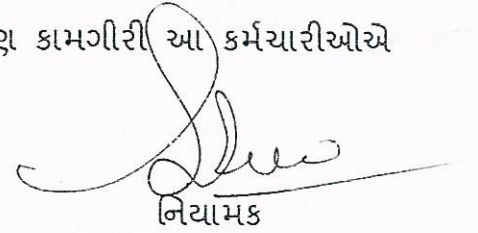 કામગીરી આ કર્મચારીઓએ
નિયામક